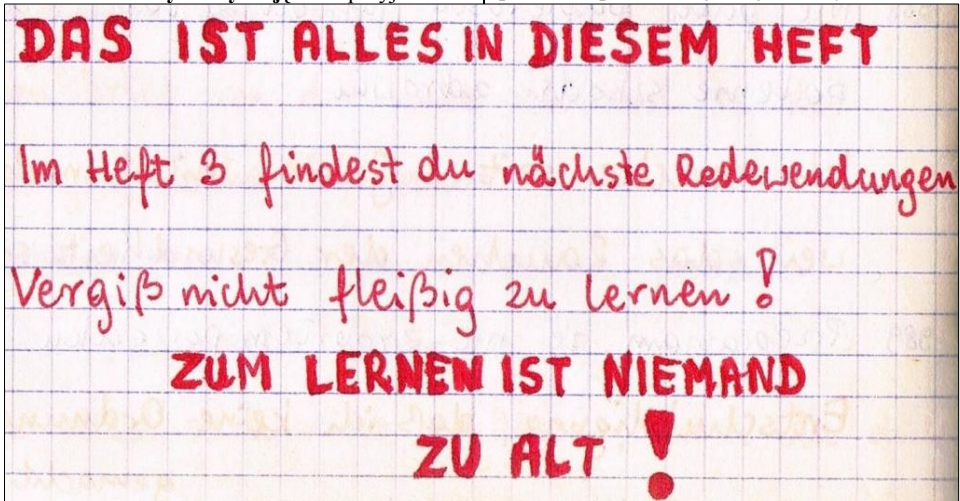 DAS IST ALLES IN DIESEM HEFT
Im Heft 3 findest du nächste Redewendungen
Vergiß nicht fleißig zu lernen!
ZUM LERNEN IST NIEMAND
ZU ALT!